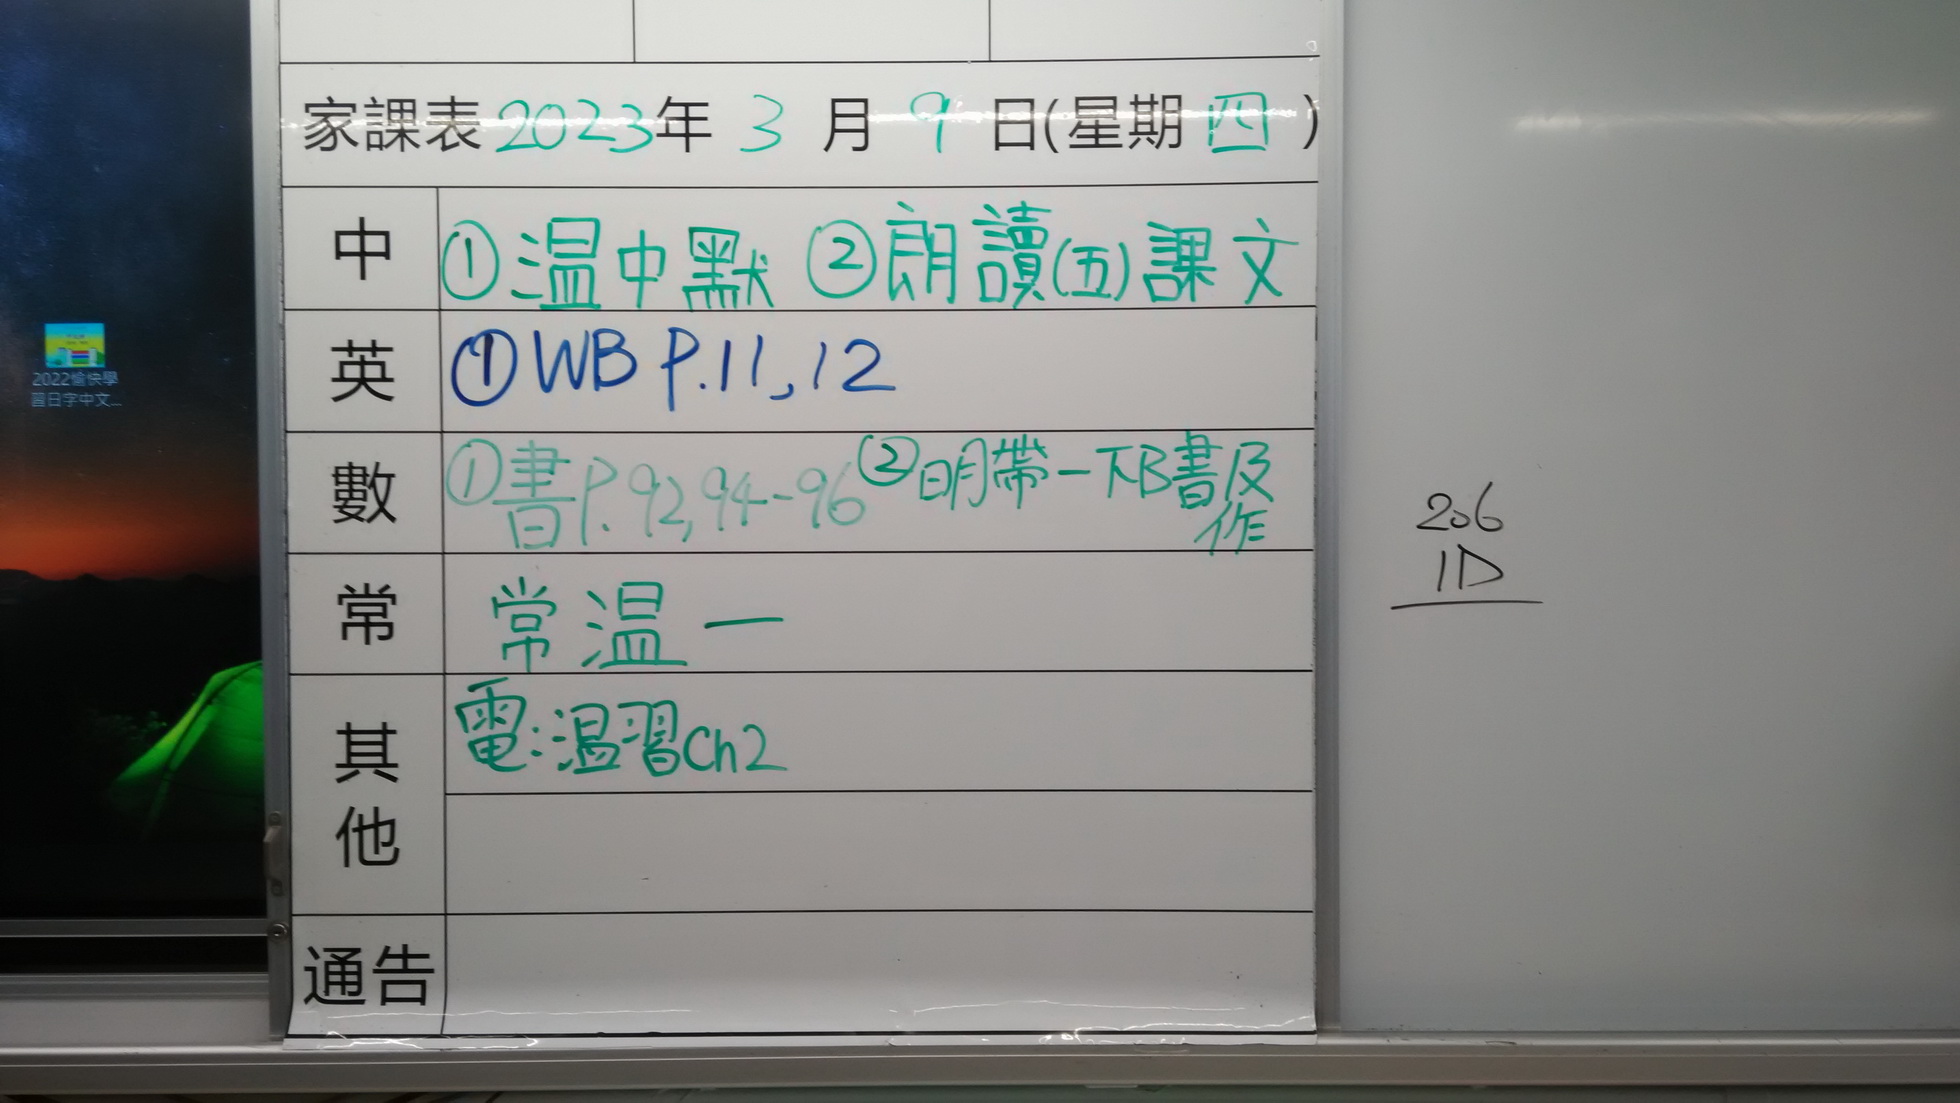 家課表 2023年 3 月 9 日(星期 四 )
中 ①温中默 ②朗讀(五)課文
英 ①WB P.11,12
數 ①書P.92,94-96 ②明帶一下B書及
作
常 常温一
其他 電:温習Ch2
通告
2022愉快學
習日字中文...
206
1D